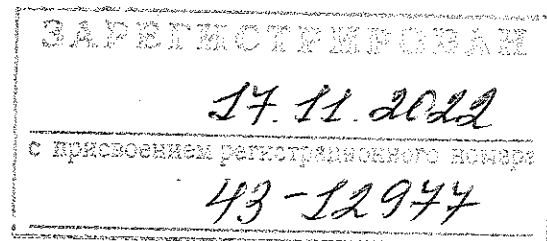 ЗАРЕГИСТРИРОВАН
17.11.2022
с присвоением регистрационного номера
43-12977